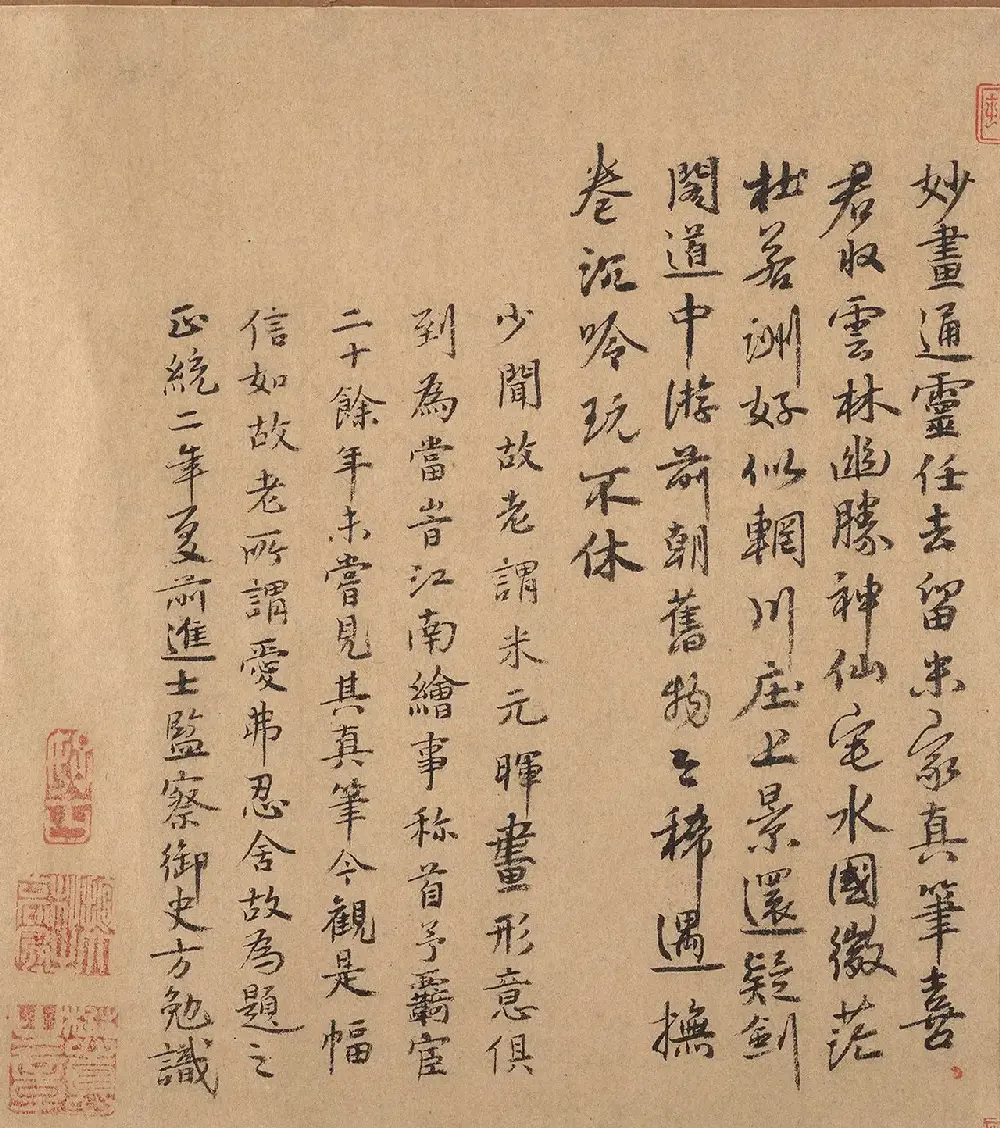 妙畫通靈任去留米家真筆喜
君收雲林幽勝神仙宅水國微茫
杜若洲好似輞川庄上景還疑劍
閣道中游前朝舊物こ稀遇撫
卷沉吟玩不休
少聞故老謂米元暉畫形意俱
到為當旹江南繪事称首予覊宦
二十餘年未嘗見其真筆今観是幅
信如故老所謂愛弗忍舍故為題之
正統二年夏前進士監察御史方勉識